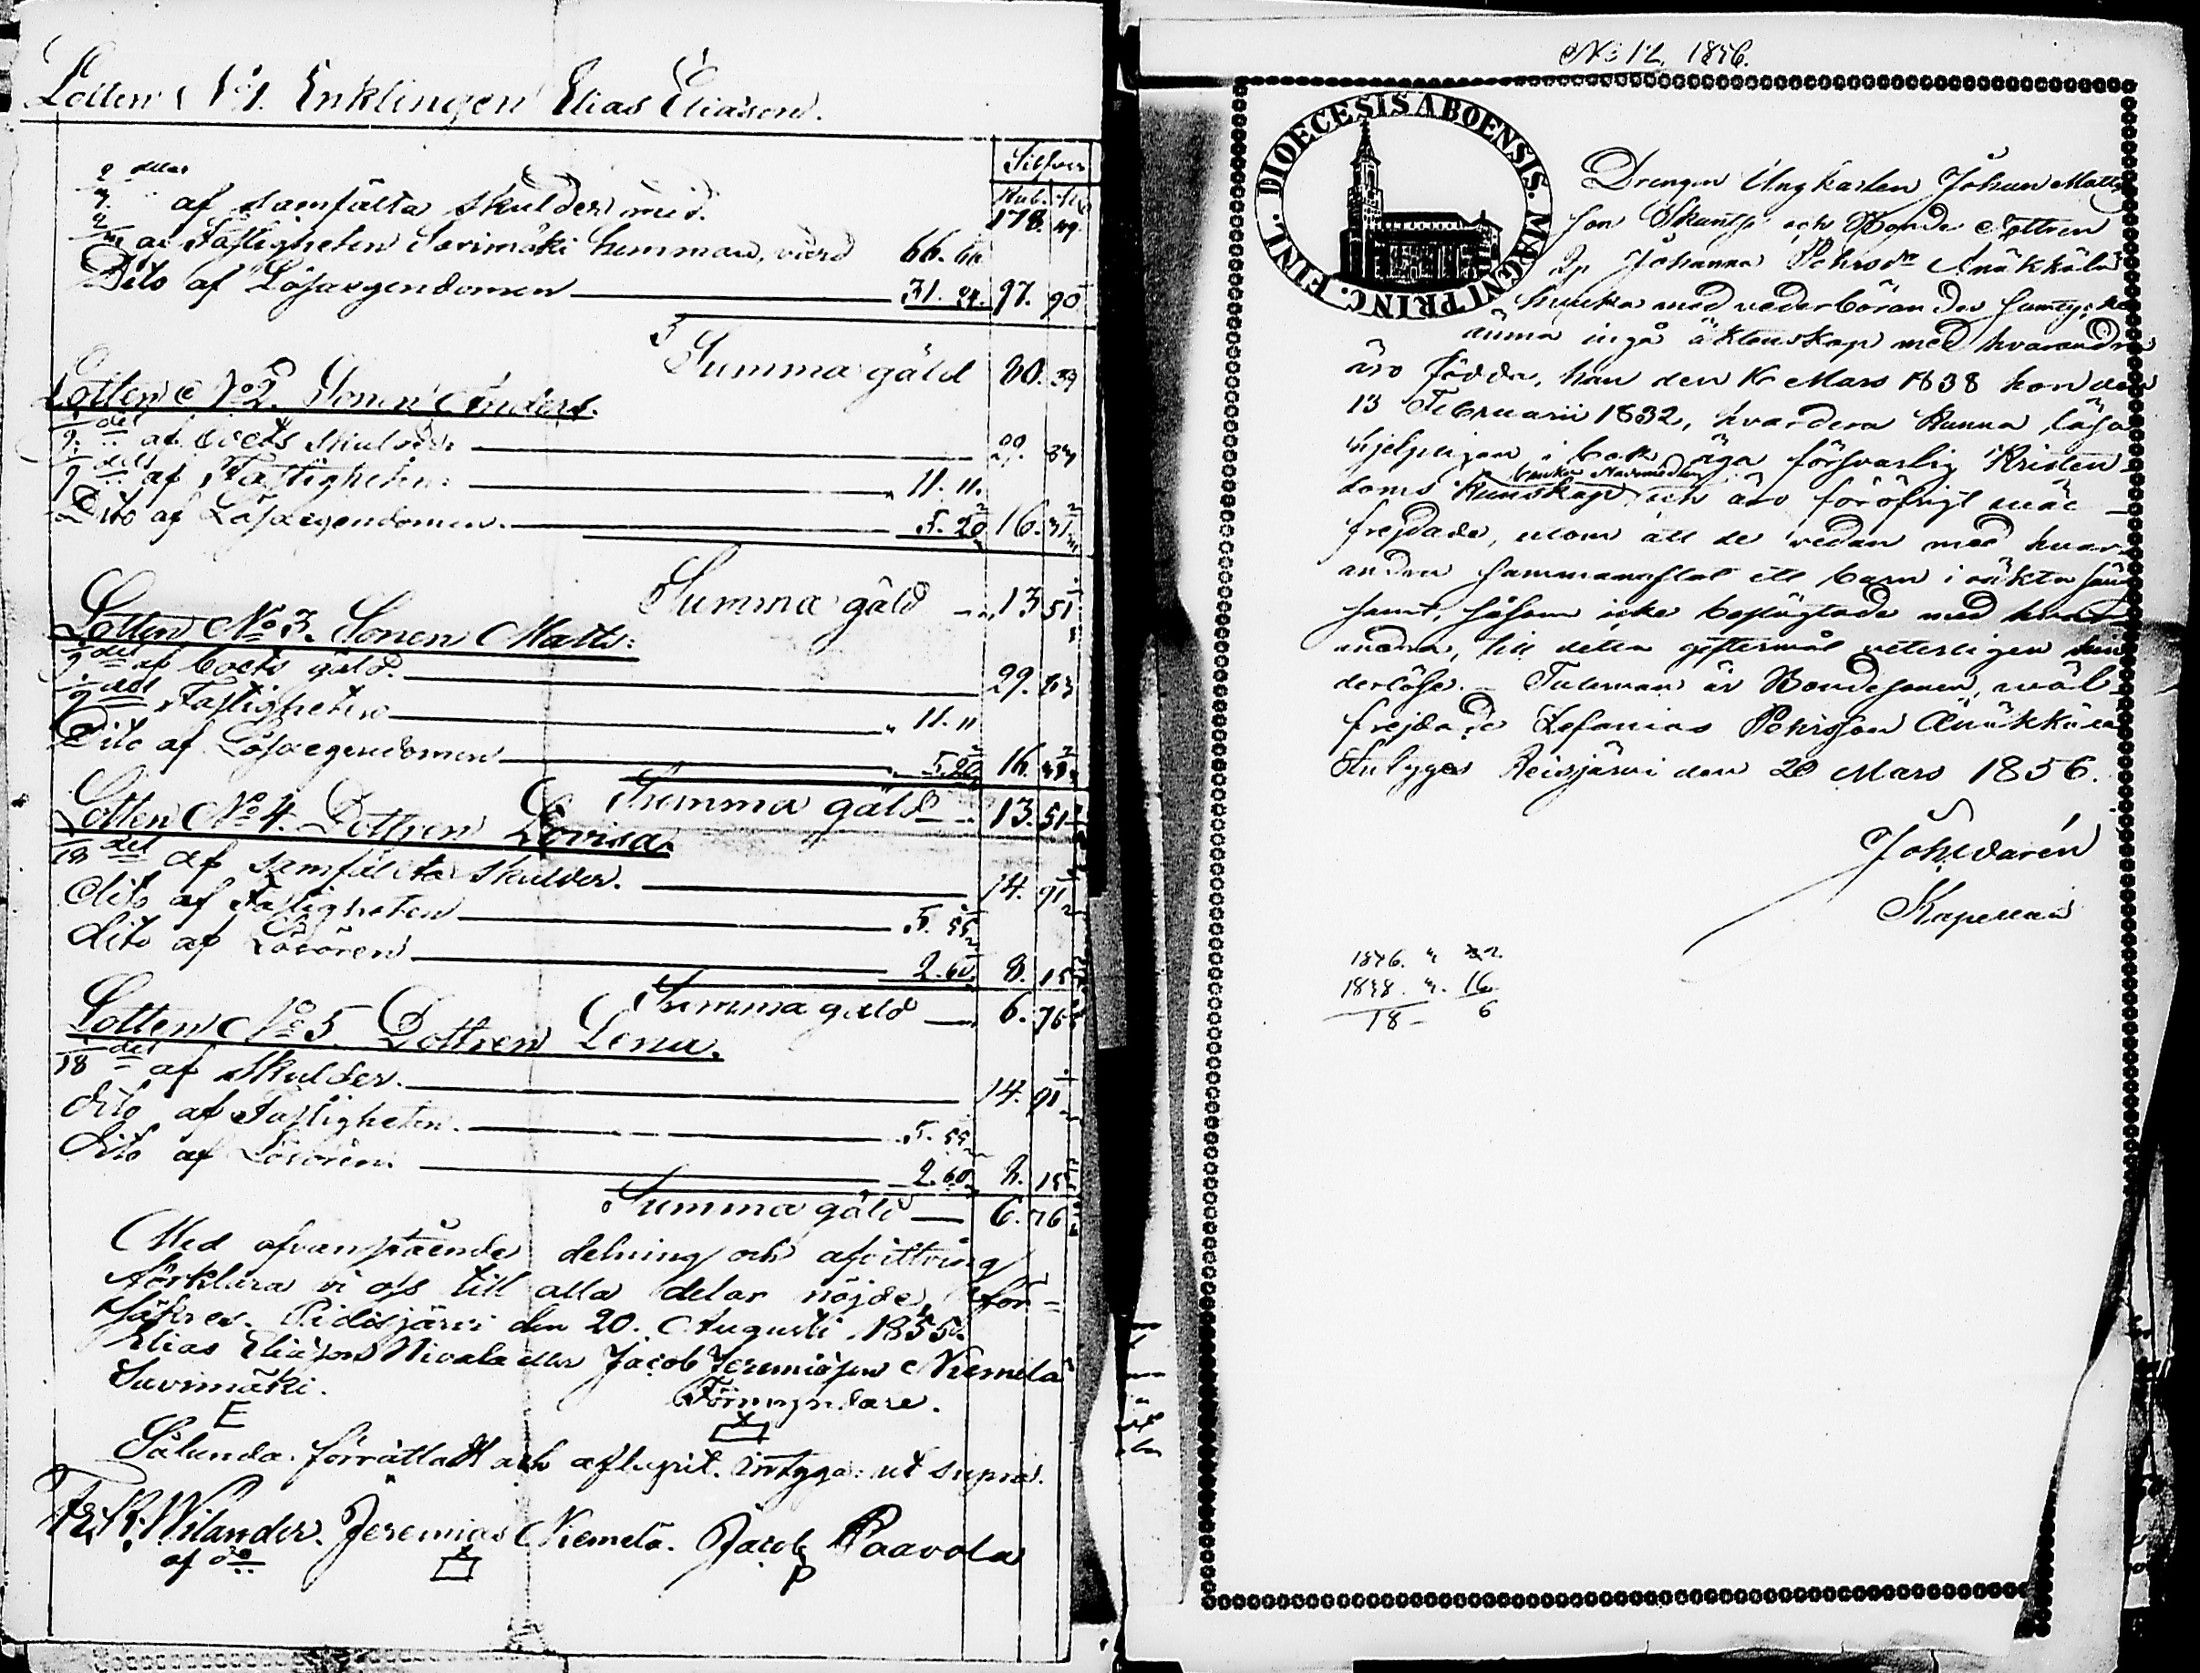 Lotten No 1. Enklingen Elias Eliason.
Silfver
Rub.
af samfälta skulder med. 178. 49
af Fastigheten Sarimäki hemman, värd 66. 66
Dito af Lösaegendomen 31. 24. 97. 90
Summa gäld 80. 59
Lotten No 2. Sonen Anders.
1/9 del af boets skulder 29. 83
1/9 del af Fastigheten 11. 11.
Dito af Lösaegendomen. 5. 20 16. 31
Summa gäld 13 51
Lotten No 3. Sonen Matts:
1/9 del af boets gäld. 29. 83
1/9 del Fastigheten 11. 11
Dito af Lösaegendomen 5. 20 16.
Summa gäld 13. 51
Lotten No 4. Dottren Lovisa.
1/18 del af samfälta skulder. 14. 91
dito af Fastigheten 5. 55
dito af Lösören 2. 60. 8. 15
Summa gäld 6. 76
Lotten No 5. Dottren Lena.
1/18 del af skulder. 14. 91
dito af Fastigheten. 5. 55
dito af Lösören. 2. 60 8. 15
Summa gäld 6. 76
Med ofvanstående delning och afvittring
förklara vi oss till alla delar nöjde, för-
säkres. Pidisjärvi den 20. Augusti 1855.
Elias Eliason Nivala eller Jacob Jeremiasson Niemelä
Savimäki. Förmyndare.
E
Sålunda förrättadt och aflupit. intyga: ut supra.
Fr. R. Wilander. Jeremias Niemelä. Jacob Paavola
P
No 12. 1856.
FINL. DIOECESIS ABOENSIS. MAGNI PRINC.
Drengen Ungkarlen Johan Matts
son Skantsi och Bonde Dottren
Johanna Pehrsdr Änäkkälä
hvilka med vederbörandes samtycke
ämna ingå äktenskap med hvarandra
äro födda, han den 16 Mars 1838 hon den
13 Februarii 1832, hvardera kunna läsa
hjelpligen i bok äga försvarlig Kristen-
doms Kunskap bruka Nademedlen och äro föröfrigt väl
frejdade, utom att de redan med hvar-
andra sammanaflat ett barn i oäkta säng
samt, såsom icke beslägtade med hvar-
andra, till detta giftermål veterligen hin
derlösa. Talesman är Bondesonen, wäl-
frejdade Zefanias Pehrsson Änäkkälä
Intygas Reisjärvi den 20 Mars 1856.
Joh. 
Kapellan
1856. 3. 22.
1838. 3. 16
18 - 6